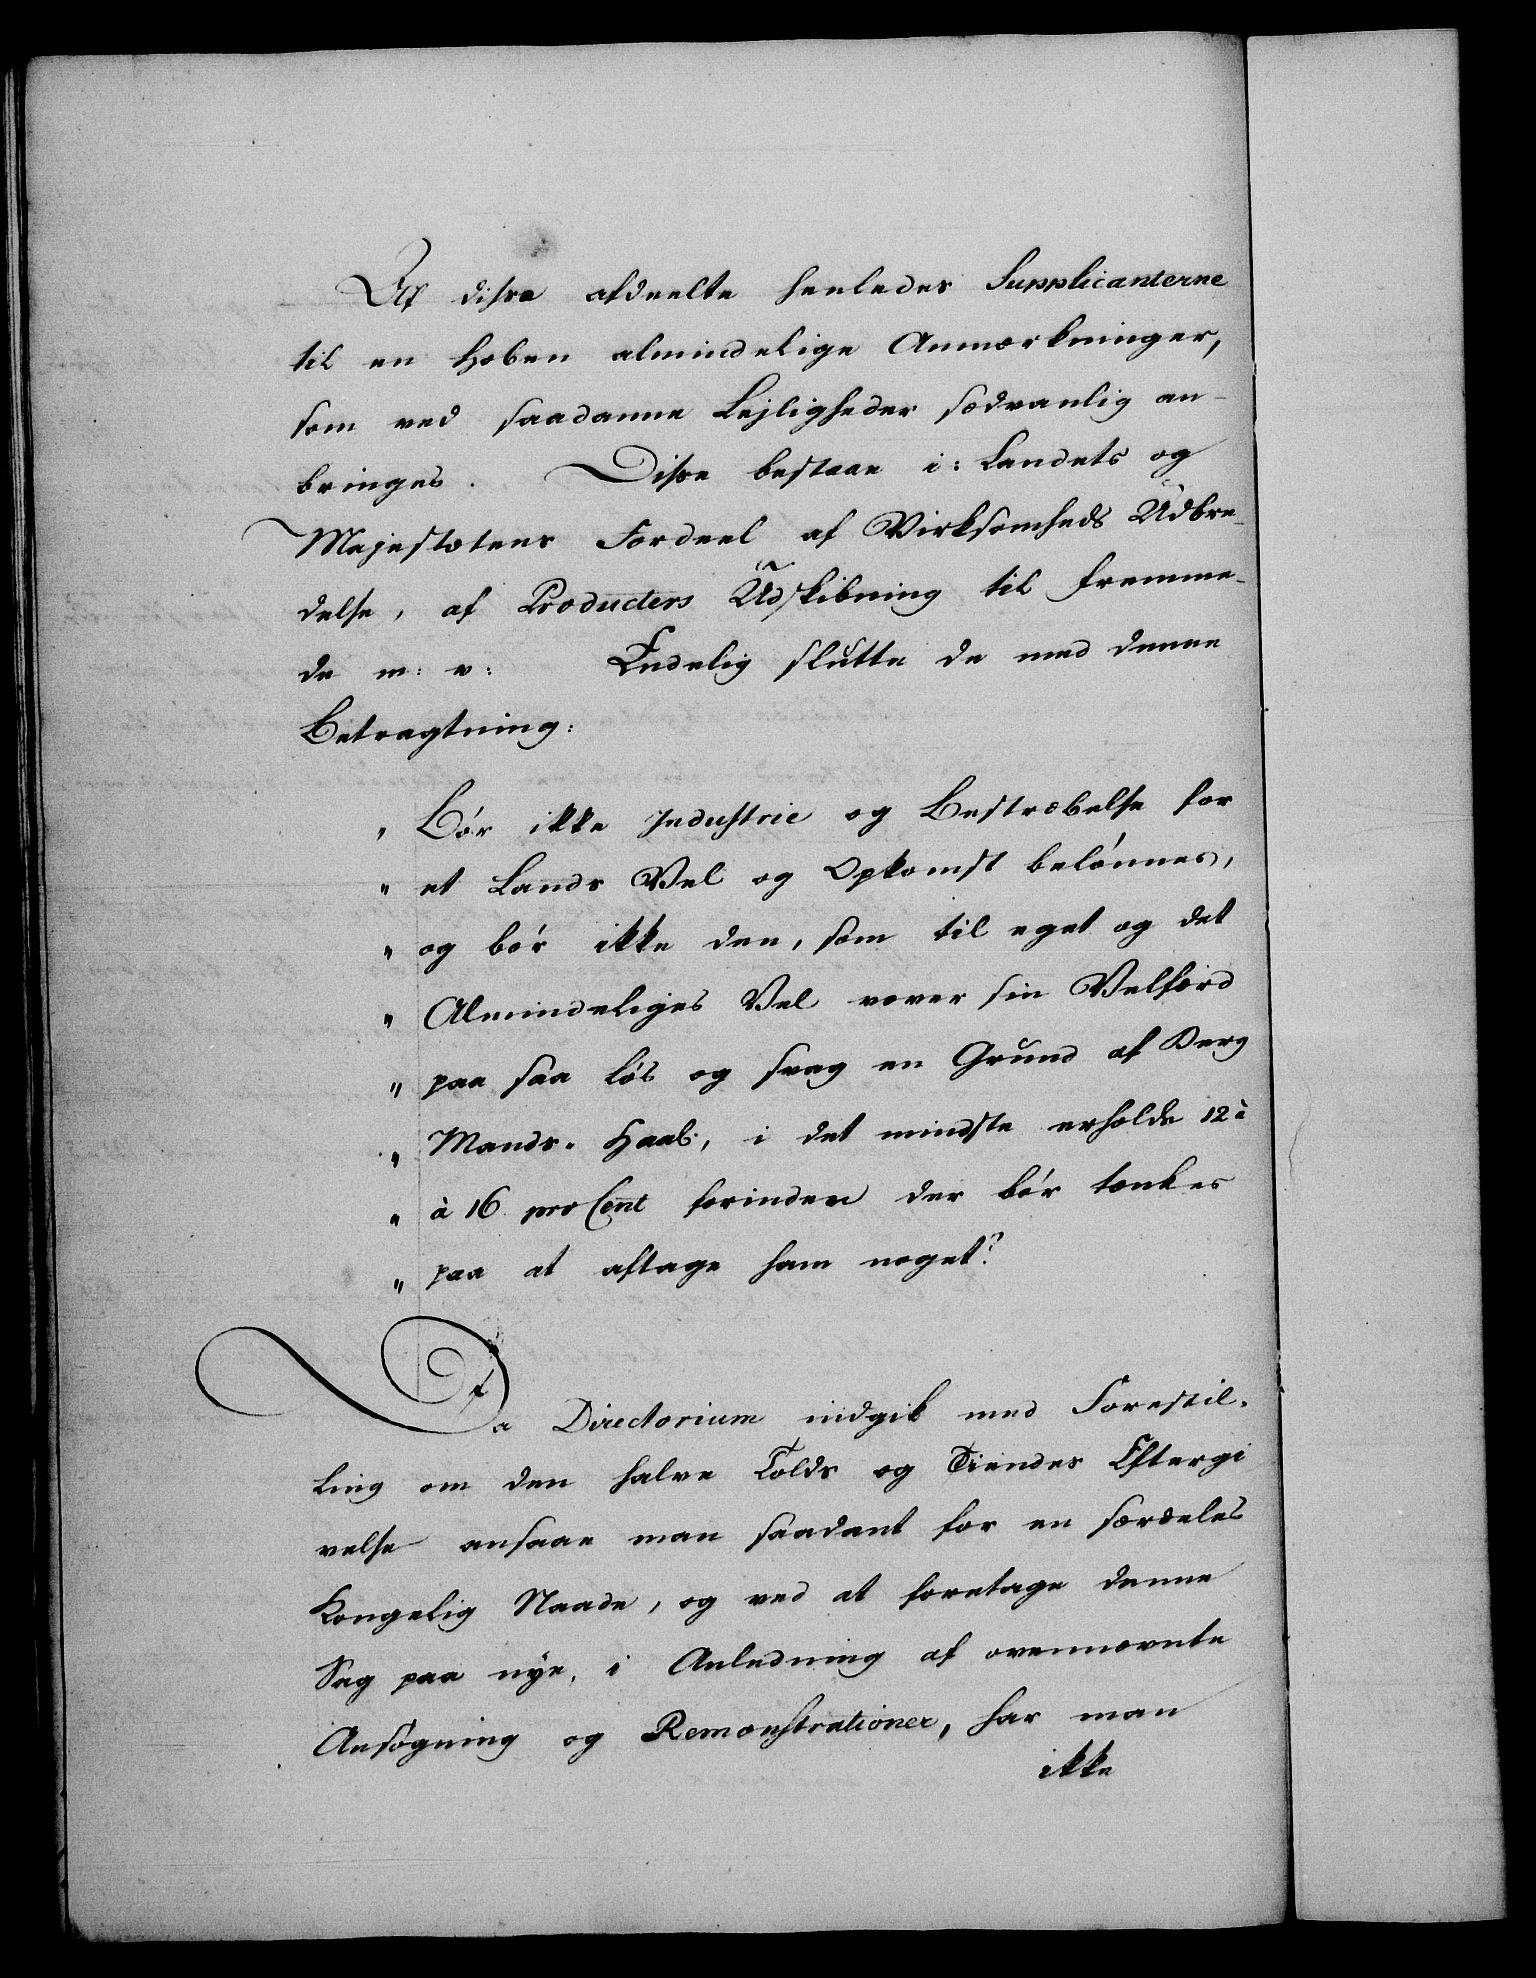 Af disse afdeelte henledes Supplicanterne
til en Hoben almindelige Anmærkninger,
som ved saadanne Lejligheder sædvanlig an-
bringes. Disse bestaae i: Landets og
Majestætens Fordeel af Virksomheds Udbre-
delse, af Producters Udskibning til fremme-
de m: v: Endelig slutte de med denne
Betragtning:
" Bør ikke Industrie og Bestræbelse for
" et Lands Vel og Opkomst belønnes,
" og bør ikke den, som til eget og det
" Almindeliges Vel vover sin Velfærd
" paa saa løs og svag en Grund af Berg
" Mands-Haab, i det mindste erholde 12 à
" à 16 pro Cent forinden der bør tænkes
" paa at aftage ham noget?
Da Directorium indgik med Forestil-
ling om den halve Tolds og Tiendes Eftergi
velse ansaae man saadant for en særdeles
Kongelig Naade, og ved at foretage denne
Sag paa nye, i Anledning af ovennævnte
Ansøgning og Remonstrationer, har man
ikke